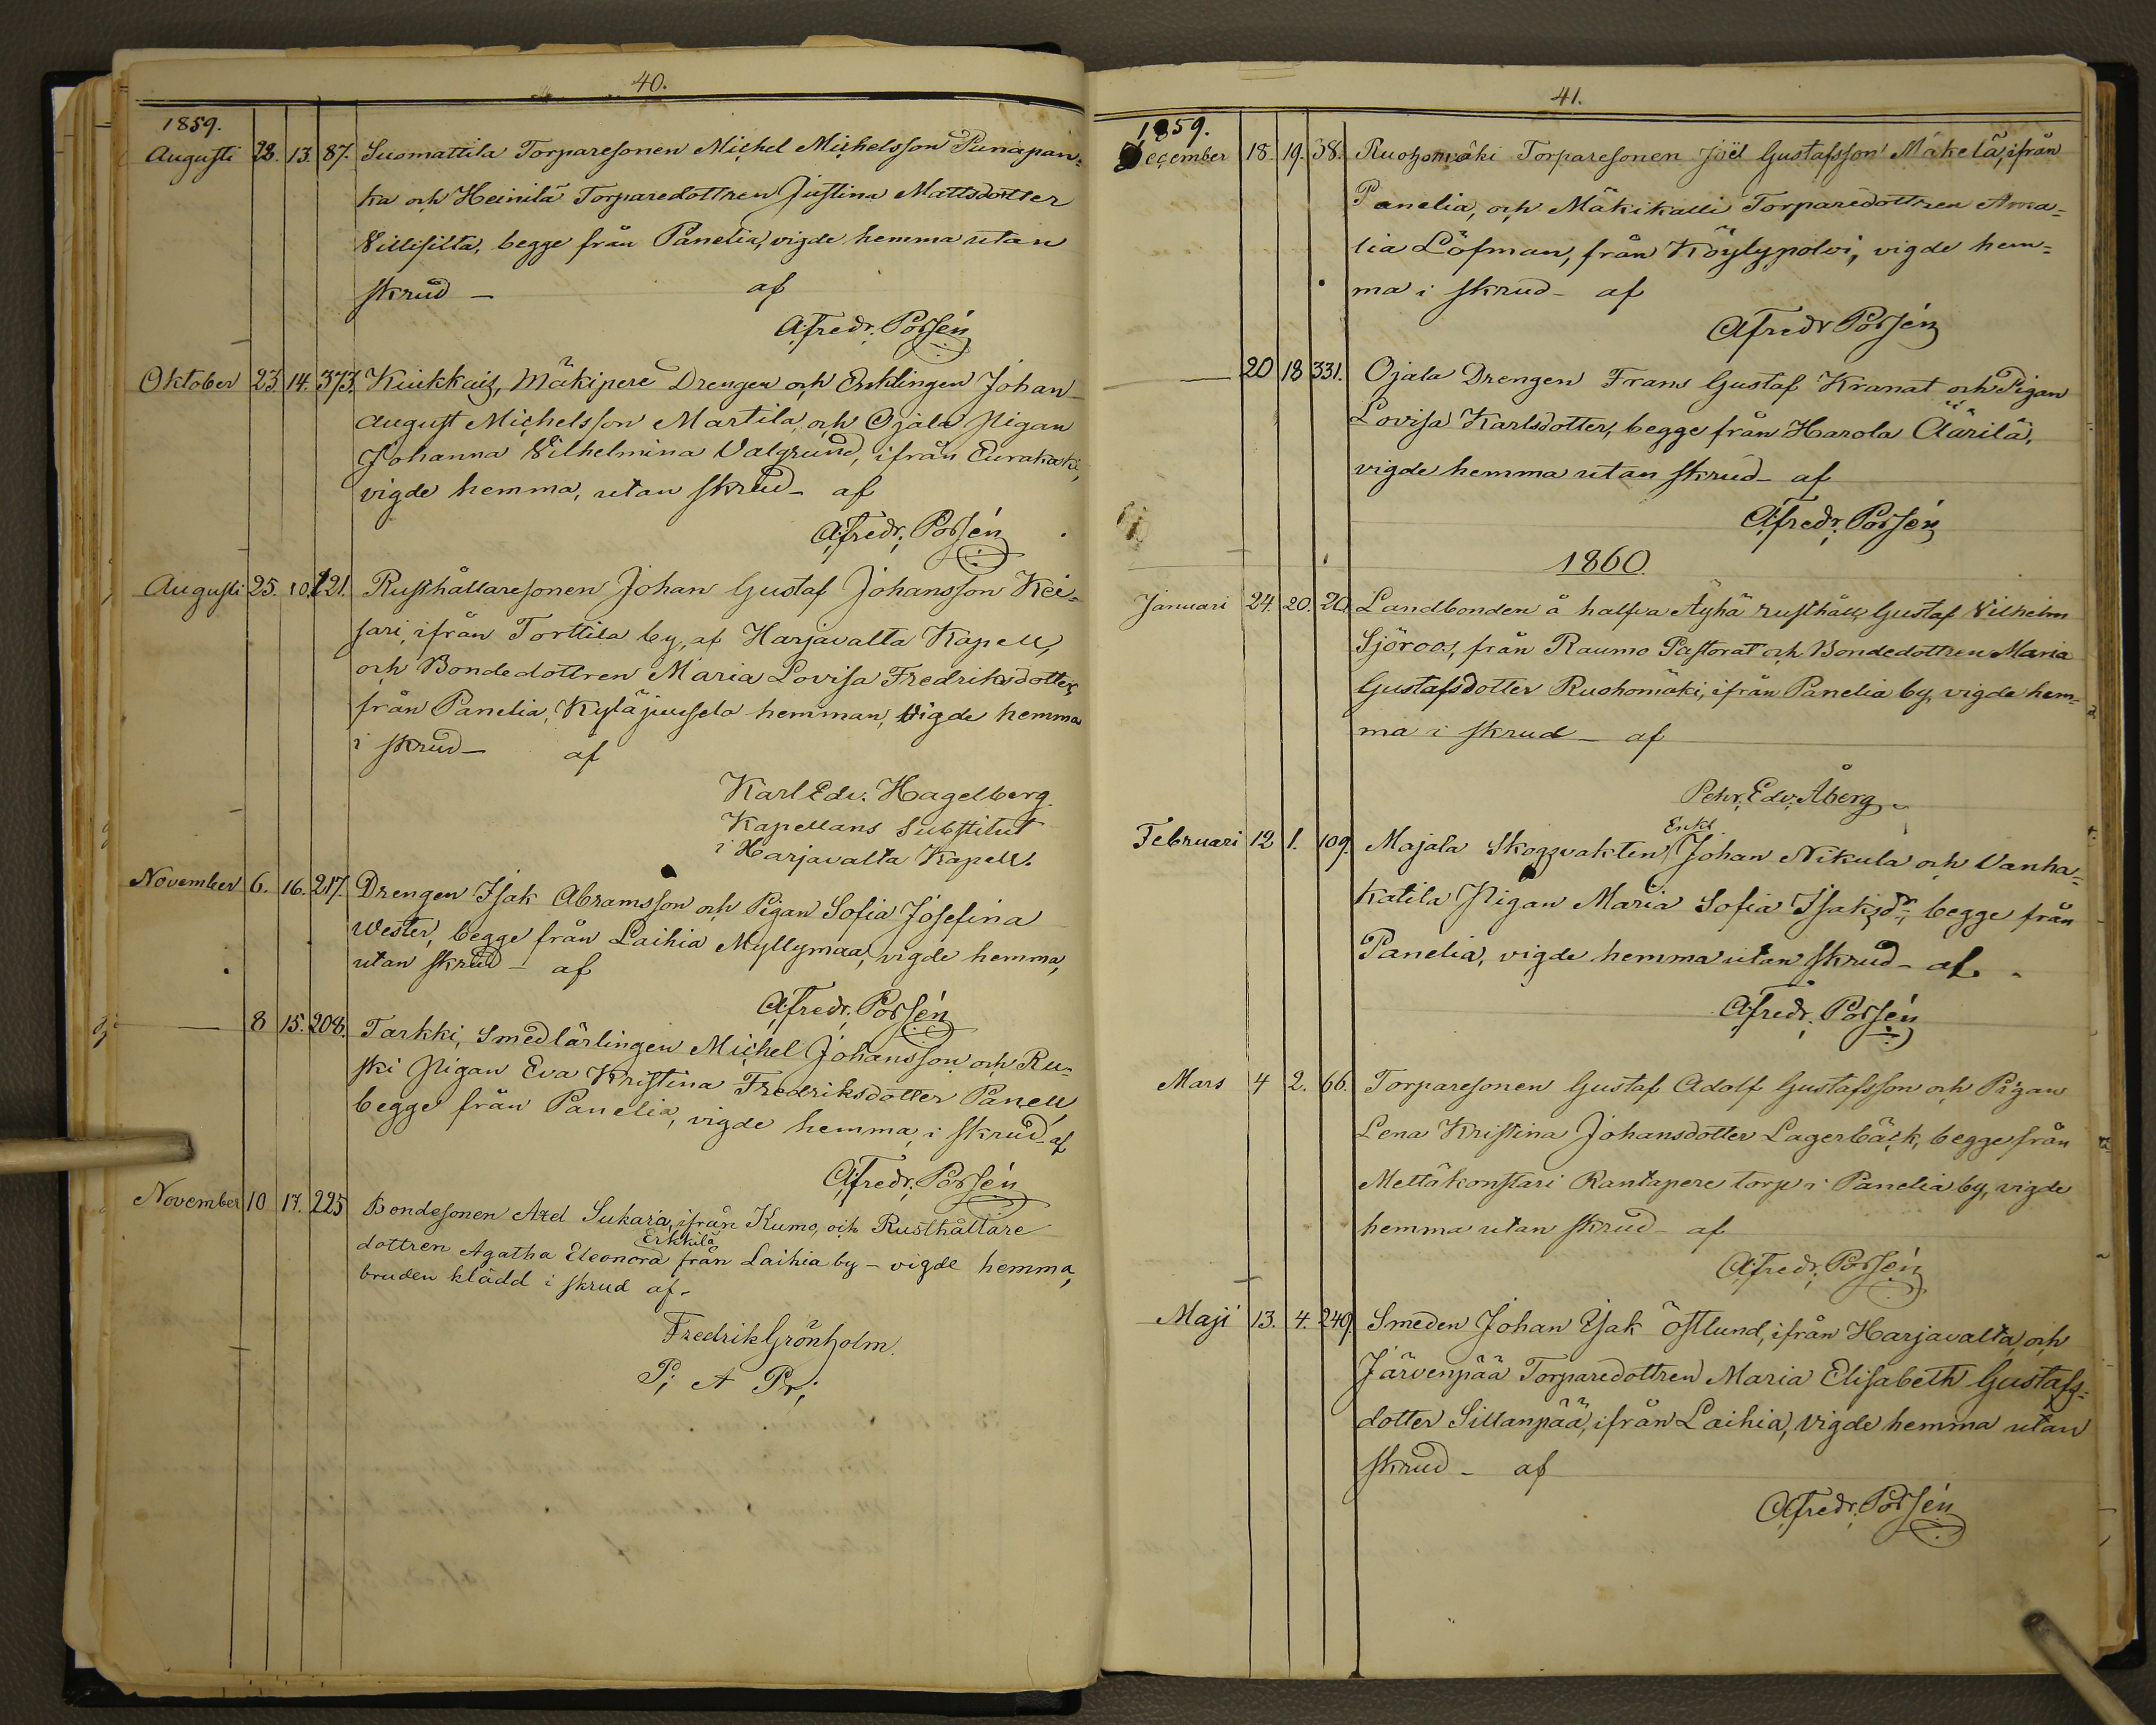 40.
1859.
Augusti 28. 13. 87. Suomattila Torparesonen Michel Michelsson Punapan=
ka och Heinilä Torparedottren Justina Mattsdotter
Villisilta, begge från Panelia, vigde hemma utan
skrud — af
A. Fredr. Porsén
Oktober 23. 14. 373. Kiukkais, Mäkiperé Drengen och Enklingen Johan
August Michelsson Martila, och Ojala Pigan
Johanna Vilhelmina Valgrund, ifrån Eurakoski,
vigde hemma, utan skrud — af
A. Fredr. Porsén
Augusti 25. 10. 121. Rusthållaresonen Johan Gustaf Johansson Kei=
sari, ifrån Torttila by, af Harjavalta Kapell,
och Bondedottren Maria Lovisa Fredriksdotter,
från Panelia, Kyläjuusela hemman, vigde hemma
i skrud — af
Karl Edv. Hagelberg.
Kapellans Substitut
i Harjavalta Kapell.
November 6. 16. 217. Drengen Isak Abramsson och Pigan Sofia Josefina
Wester, begge från Laihia Myllymaa, vigde hemma,
utan skrud — af
A. Fredr. Porsén
— 8 15. 208. Tarkki, Smedlärlingen Michel Johansson och Ru=
ski Pigan Eva Kristina Fredriksdotter Panell,
begge från Panelia, vigde hemma, i skrud — af
A. Fredr. Porsén
November 10 17. 225 Bondesonen Axel Sukari, ifrån Kumo, och Rusthållare
Erkkilä
dottren Agatha Eleonora från Laihia by — vigde hemma,
bruden klädd i skrud af.
Fredrik Grönholm.
P; A Pr;
41.
1859.
December 18. 19. 38. Ruohomäki Torparesonen Joël Gustafsson Mäkelä, ifrån
Panelia, och Mäkikalli Torparedottren Ama=
lia Löfman, från Köylypolvi, vigde hem=
ma i skrud — af
A Fredr Porsén
— 20 18 331. Ojala Drengen Frans Gustaf Kranat och Pigan
Lovisa Karlsdotter, begge från Harola Äärilä,
vigde hemma utan skrud — af
A. Fredr. Porsén
1860.
Januari 24. 20. 20. Landbonden å halfva Äyhä rusthåll, Gustaf Vilhelm
Sjöroos, från Raumo Pastorat och Bondedottren Maria
Gustafsdotter Ruohomäki, ifrån Panelia by, vigde hem=
ma i skrud — af
Pehr. Edv. Åberg
Enkl.
Februari 12 1. 109. Majala Skogsvakten, Johan Nikula och Vanha=
katila Pigan Maria Sofia Isaksdr; begge från
Panelia, vigde hemma utan skrud — af.
A. Fredr. Porsén
Mars 4 2. 66. Torparesonen Gustaf Adolf Gustafsson och Pigan
Lena Kristina Johansdotter Lagerbäck, begge från
Mettäkonstari Rantapere torp i Panelia by, vigde
hemma utan skrud — af
A. Fredr. Porsén
Maji 13. 4. 249. Smeden Johan Isak Östlund, ifrån Harjavalta, och
Järvenpää Torparedottren Maria Elisabeth Gustafs=
dotter Sillanpää, ifrån Laihia, vigde hemma utan
skrud — af
A. Fredr. Porsén